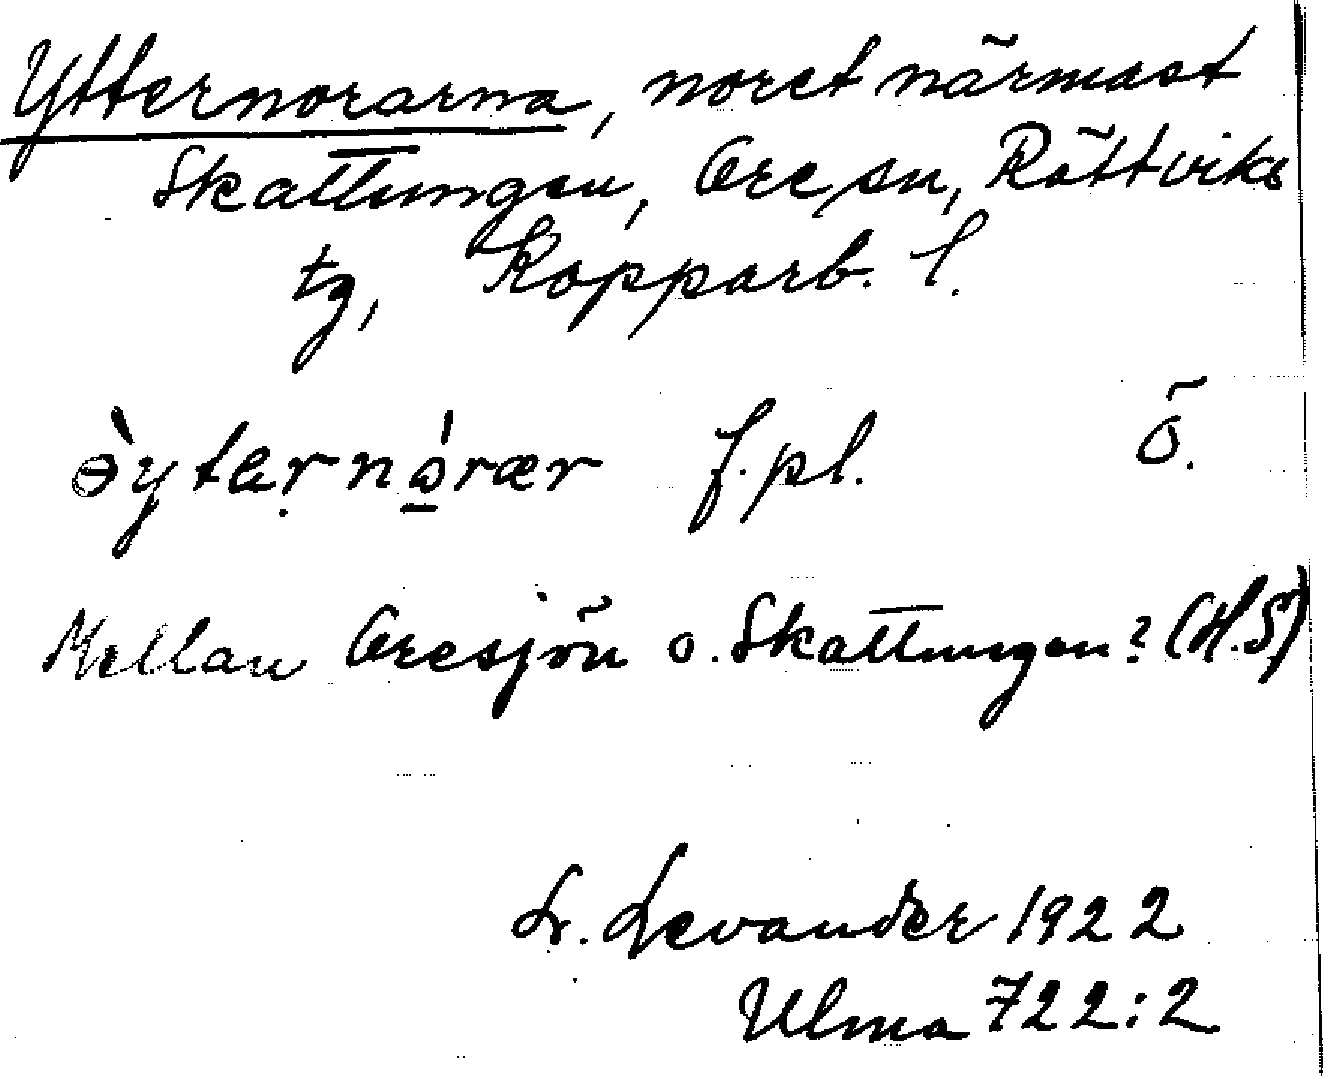 Ytternorarna, noret närmast
Skattungen, Ore sn, Rättviks
tg, Kopparb. l.
ə̀ytərnó̱rær f. pl. Ö.
Mellan Oresjön o. Skattungen? (H.S)
L. Levander 1922
Ulma 722:2